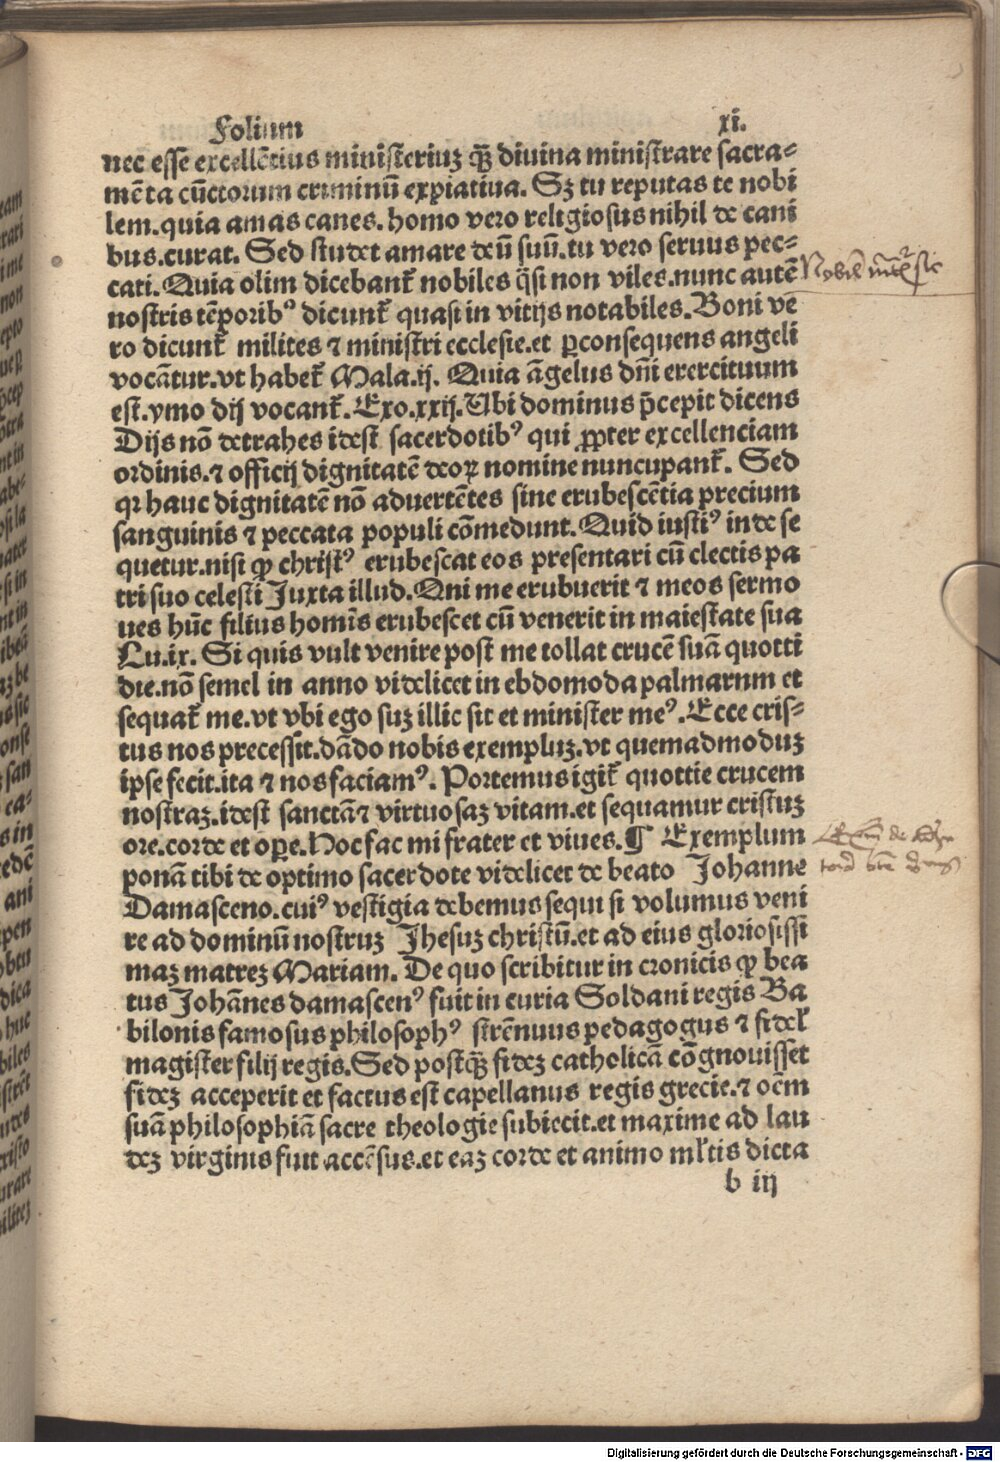 Folium xi.
nec esse excellētius ministeriuꝫ qꝫ̄ diuina ministrare sacra⸗
mēta cūctorum criminū expiatiua. Sꝫ tu reputas te nobi
lem.quia amas canes. homo vero religiosus nihil de cani
bus.curat. Sed studet amare deū suū.tu vero seruus pec⸗
cati. Quia olim dicebant᷑ nobiles q̄si non viles.nunc autē
nostris tēporibꝰ dicunt᷑ quasi in vitijs notabiles. Boni ve
ro dicunt᷑ milites ⁊ ministri ecclesie.et ꝑconsequens angeli
vocātur.vt habet᷑ Mala.ij. Quia āgelus dn̄i exercituum
est.ymo dij vocant᷑. Exo.xxij. Ubi dominus p̄cepit dicens
Dijs nō detrahes idest sacerdotibꝰ qui ꝓpter excellenciam
ordinis.⁊ officij dignitatē deoꝝ nomine nuncupant᷑. Sed
qꝛ hanc dignitatē nō aduertētes sine erubescētia precium
sanguinis ⁊ peccata populi cōmedunt. Quid iustiꝰ inde se
quetur.nisi ꝙ christꝰ erubescat eos presentari cū electis pa
tri suo celesti Juxta illud. Qui me erubuerit ⁊ meos sermo
nes hūc filius homīs erubescet cū venerit in maiestate sua
Lu.ix. Si quis vult venire post me tollat crucē suā quotti
die.nō semel in anno videlicet in ebdomoda palmarum et
sequat᷑ me.vt vbi ego suꝫ illic sit et minister meꝰ. Ecce cris⸗
tus nos precessit.dādo nobis exempluꝫ.vt quemadmoduꝫ
ipse fecit.ita ⁊ nos faciamꝰ. Portemus igit᷑ quottie crucem
nostraꝫ.idest sanctā⁊ virtuosaꝫ vitam.et sequamur cristuꝫ
ore.corde et oꝑe. Hoc fac mi frater et viues. ¶ Exemplum
ponā tibi de optimo sacerdote videlicet de beato Johanne
Damasceno.cuiꝰ vestigia debemus sequi si volumus veni
re ad dominū nostruꝫ Jhesuꝫ christū.et ad eius gloriosissi
maꝫ matreꝫ Mariam. De quo scribitur in cronicis ꝙ bea
tus Johānes damascenꝰ fuit in curia Soldani regis Ba
bilonis famosus philosophꝰ strēnuus pedagogus ⁊ fidel᷑
magister filij regis. Sed postqꝫ̄ fideꝫ catholicā cōgnouisset
fideꝫ acceperit et factus est capellanus regis grecie.⁊ oēm
suā philosophiā sacre theologie subiecit.et maxime ad lau
deꝫ virginis fuit accēsus.et eaꝫ corde et animo ml᷑tis dicta
b iij
Digitalisierung gefördert durch die Deutsche Forschungsgemeinschaft - DFG